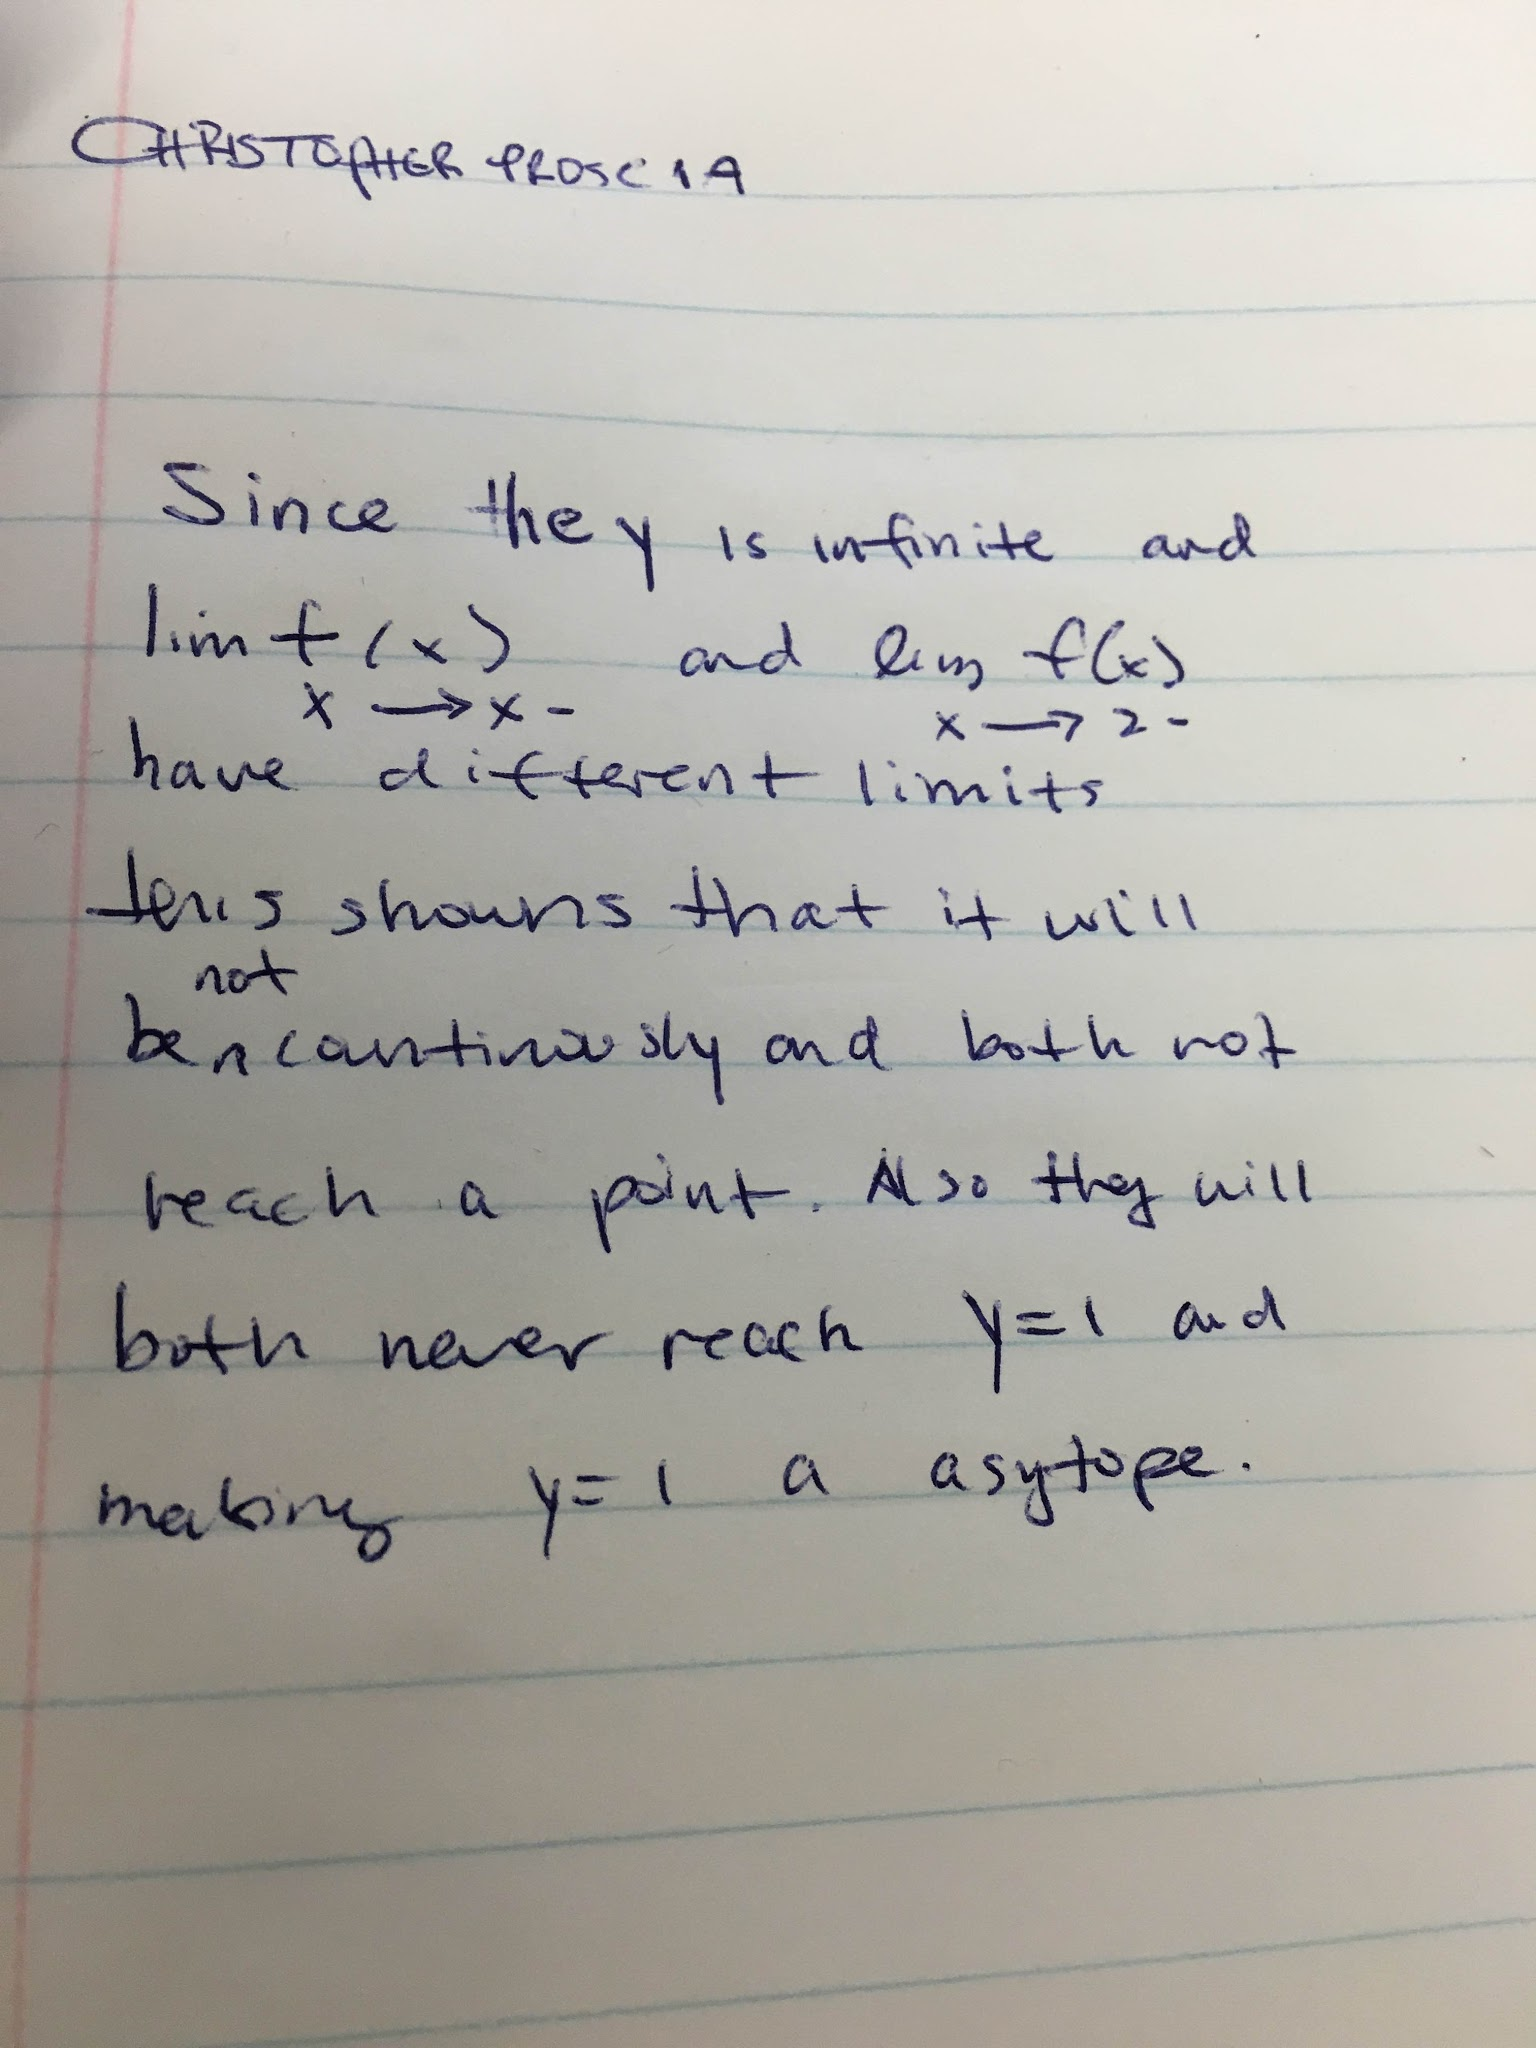 CHRISTOPHER PROSCIA
Since the y is infinite and
lim f(x) and lim f(x)
x → x - x → 2 -
have different limits
shows that it will
not
be ^ continously and both not
reach a point. Also they will
both never reach y=1 and
making y=1 a asytope.